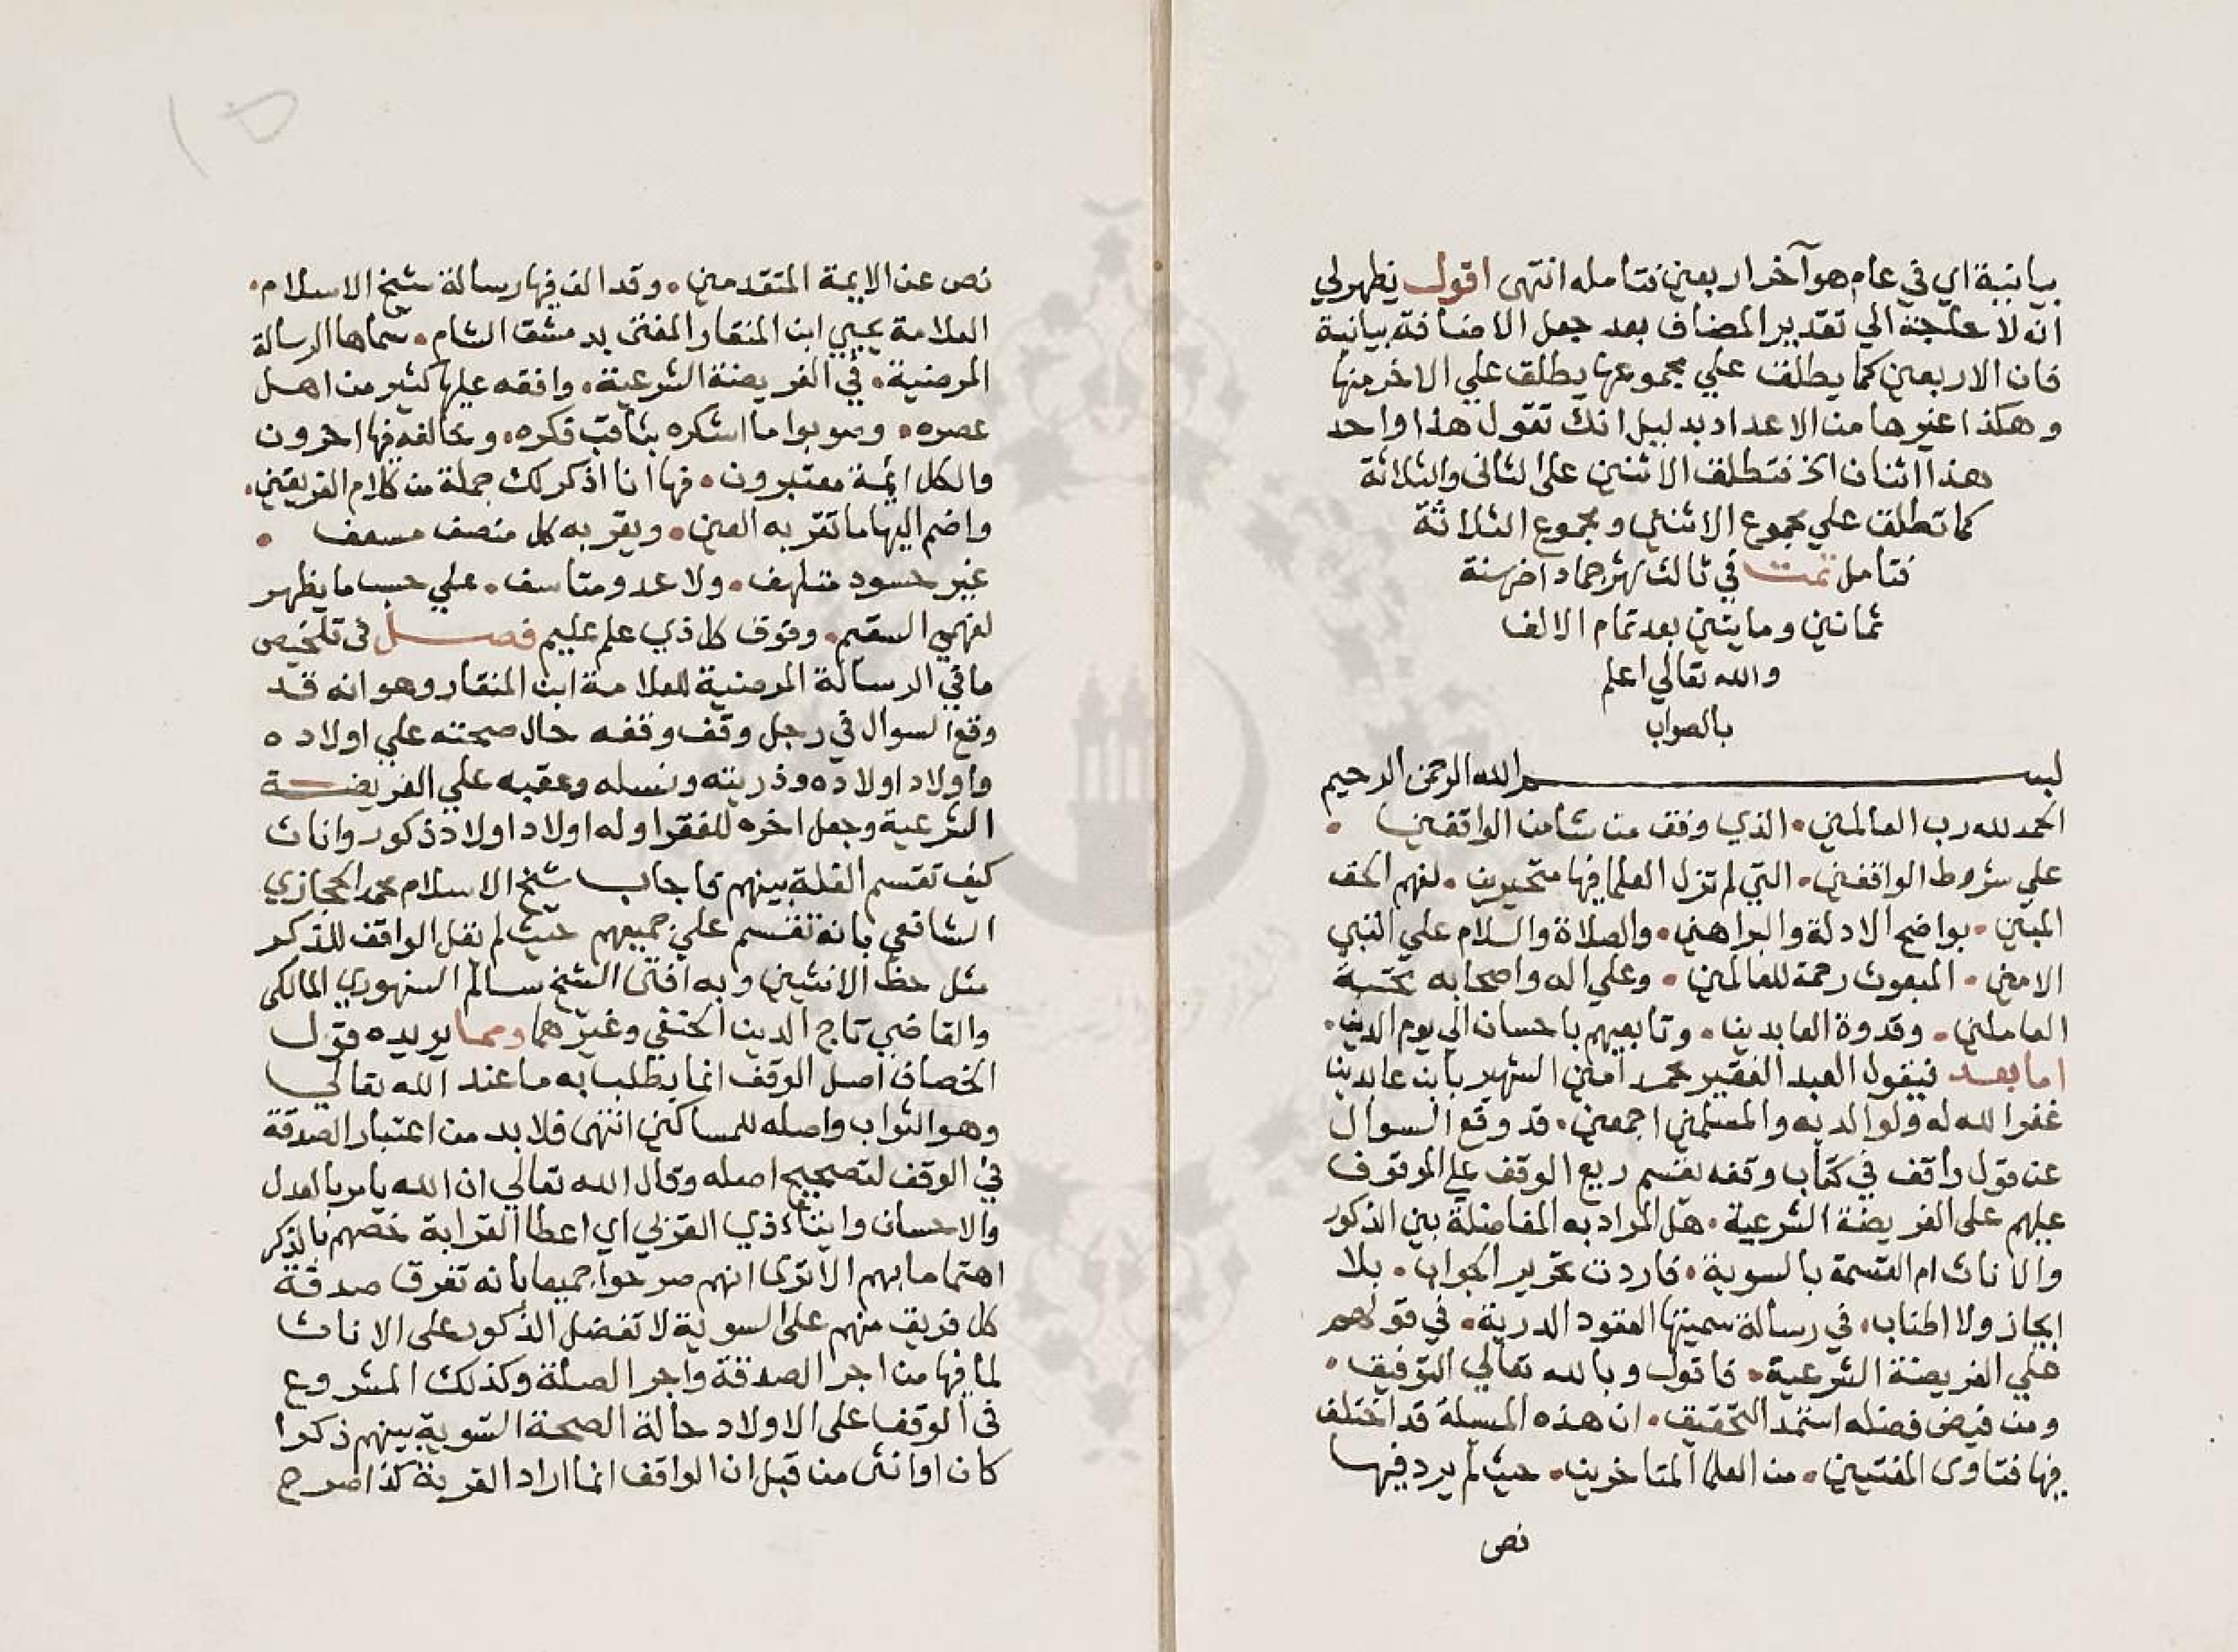 بيانية اي في عام هو آخر اربعين فتامله انتهى اقول يظهر لي
انه لا حاجة الي تقدير المضاف بعد جعل الاضافة بيانية
فان الاربعين كما يطلق علي مجموعها يطلق علي الاخر منها
وهكذا غيرها من الاعداد بدليل انك تقول هذا واحد
هذا اثنان الخ فتطلق الاثنين على الثاني والثلاثة
كما تطلق علي مجموع الاثنين ومجموع الثلاثة
فتامل تمت في ثالث شهر جماد اخر سنة
ثمانين ومايتين بعد تمام الالف
والله تعالي اعلم
بالصواب
بسم الله الرحمن الرحيم
الحمد لله رب العالمين • الذي وفق من شا من الواقفين •
علي شروط الواقفين • التي لم تزل العلما فيها متحيرين • لفهم الحق
المبين • بواضح الادلة والبراهين • والصلاة والسلام علي النبي
الامين • المبعوث رحمة للعالمين • وعلي اله واصحابه نخبة
العاملين • وقدوة العابدين • وتابعيهم باحسان الي يوم الدين •
اما بعد فيقول العبد الفقير محمد امين الشهير بابن عابدين
غفر الله له ولوالديه والمسلمين اجمعين • قد وقع السوال
عن قول واقف في كتاب وقفه يقسم ريع الوقف علي الموقوف
عليهم على الفريضة الشرعية • هل المراد به المفاضلة بين الذكور
والاناث ام القسمة بالسوية • فاردت تحرير الجواب • بلا
ايجاز ولا اطناب • في رسالة سميتها العقود الدرية • في قولهم
علي الفريضة الشرعية • فاقول وبالله تعالي التوفيق •
ومن فيض فضله استمد التحقيق • ان هذه المسيلة قد اختلف
فيها فتاوى المفتيين • من العلما المتاخرين • حيث لم يرد فيها
نص
١٥
نص عن الايمة المتقدمين • وقد الف فيها رسالة شيخ الاسلام •
العلامة يحيي ابن المنقار المفتى بدمشق الشام • سماها الرسالة
المرضية • في الفريضة الشرعية • وافقه عليها كثير من اهل
عصره • وصوبوا ما ابتكره بثاقب فكره • وخالفه فيها اخرون
والكل ائمة معتبرون • فها انا اذكر لك جملة من كلام الفريقين •
واضم اليها ما تقر به العين • ويقر به كل منصف مسعف •
غير حسود متلهف • ولا عدو متاسف • علي حسب ما يظهر
لفهمي السقيم • وفوق كل ذي علم عليم فصل في تلخيص
ما في الرسالة المرضية للعلامة ابن المنقار وهو انه قد
وقع السوال في رجل وقف وقفه حال صحته علي اولاده
واولاد اولاده وذريته ونسله وعقبه علي الفريضة
الشرعية وجعل اخره للفقرا وله اولاد اولاد ذكور واناث
كيف تقسم الغلة بينهم فاجاب شيخ الاسلام محمد الحجازي
الشافعي بانه تقسم علي جميعهم حيث لم يقل الواقف للذكر
مثل حظ الانثيين وبه افتى الشيخ سالم السنهوري المالكي
والقاضي تاج الدين الحنفي وغيرهما ومما يويده قول
الخصاف اصل الوقف انما يطلب به ما عند الله تعالي
وهو الثواب واصله للمساكين انتهى فلا بد من اعتبار الصدقة
في الوقف لتصحيح اصله وقال الله تعالي ان الله يامر بالعدل
والاحسان وايتاء ذي القربي اي اعطا القرابة خصهم بالذكر
اهتماما بهم الا ترى انهم صرحوا جميعا بانه تفرق صدقة
كل فريق منهم على السوية لا تفضل الذكور على الاناث
لما فيها من اجر الصدقة واجر الصلة وكذلك المشروع
في الوقف على الاولاد حالة الصحة التسوية بينهم ذكرا
كان او انثى من قبل ان الواقف انما اراد القربة كذا صرح